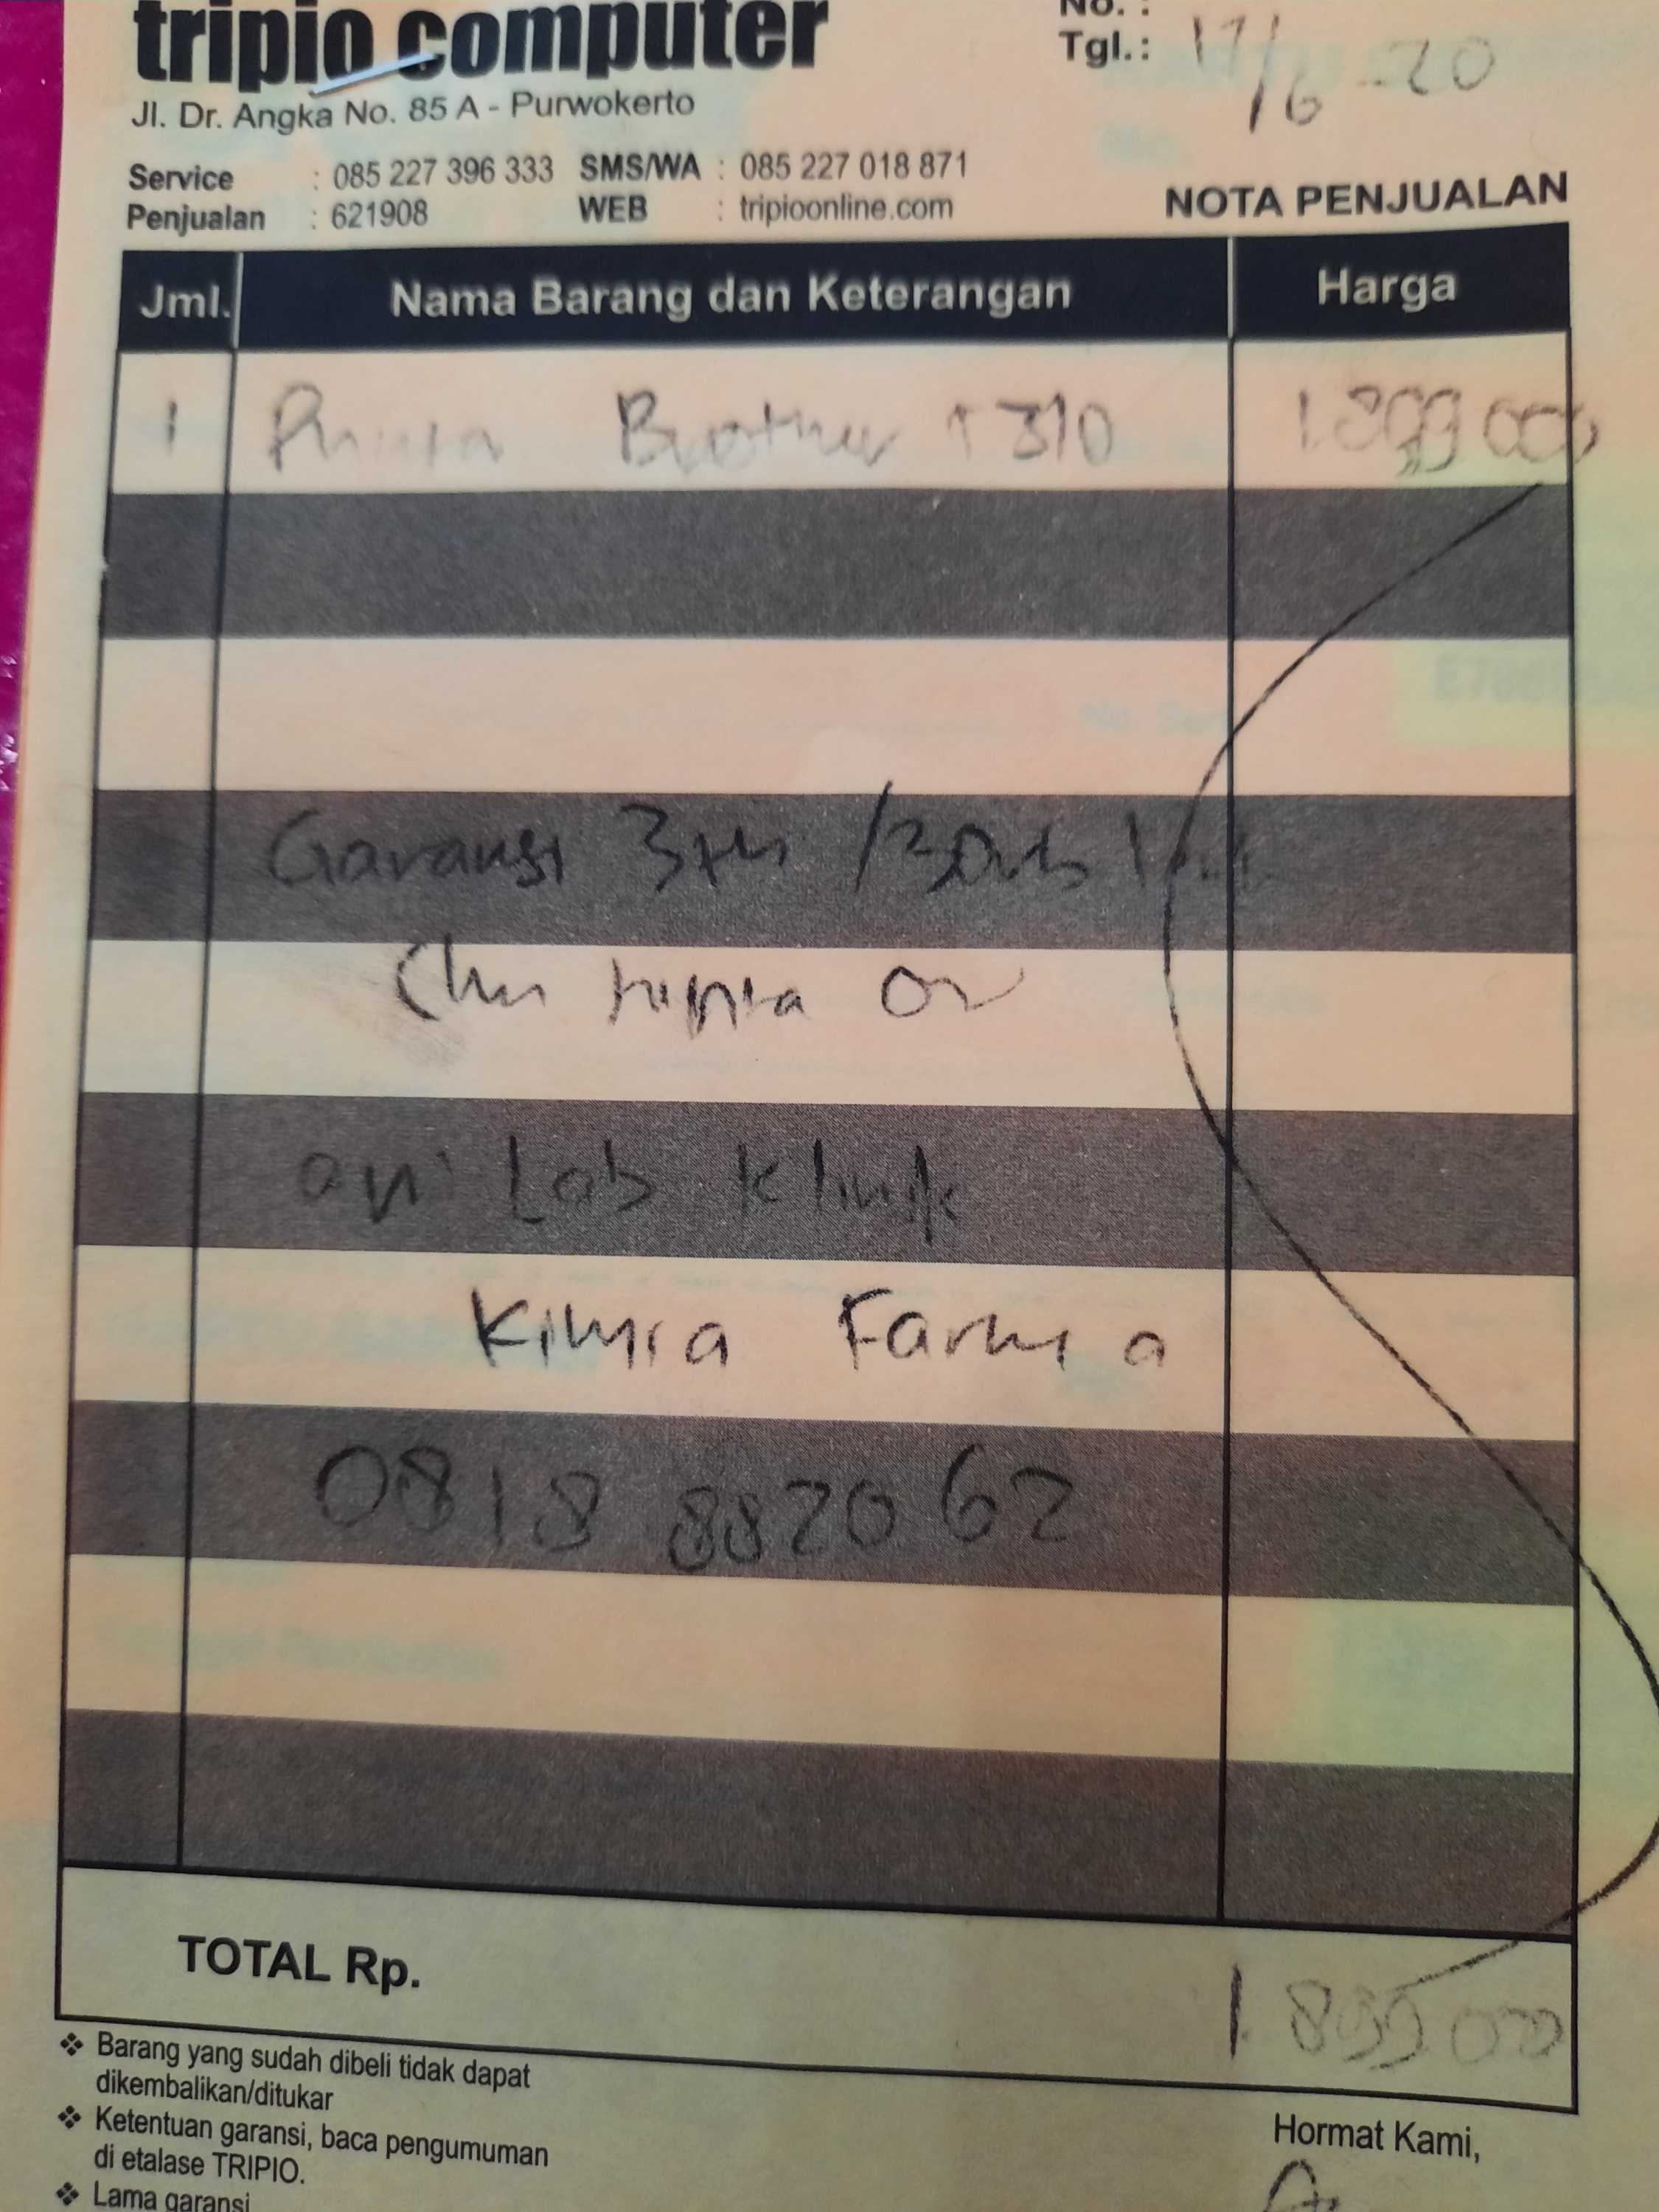 tripio computer
No. :
Tgl. : 17/6 - 20
Jl. Dr. Angka No. 85 A - Purwokerto
Service : 085 227 396 333 SMS/WA : 085 227 018 871
Penjualan : 621908 WEB : tripioonline.com
NOTA PENJUALAN
Jml. Nama Barang dan Keterangan Harga
1 Brother T310 1.899.000
Garansi 3th /30rb
Lab Klinik
Kimia Farma
0818 882062
TOTAL Rp. 1.899.000
❖ Barang yang sudah dibeli tidak dapat
dikembalikan/ditukar
❖ Ketentuan garansi, baca pengumuman
di etalase TRIPIO.
❖ Lama garansi
Hormat Kami,